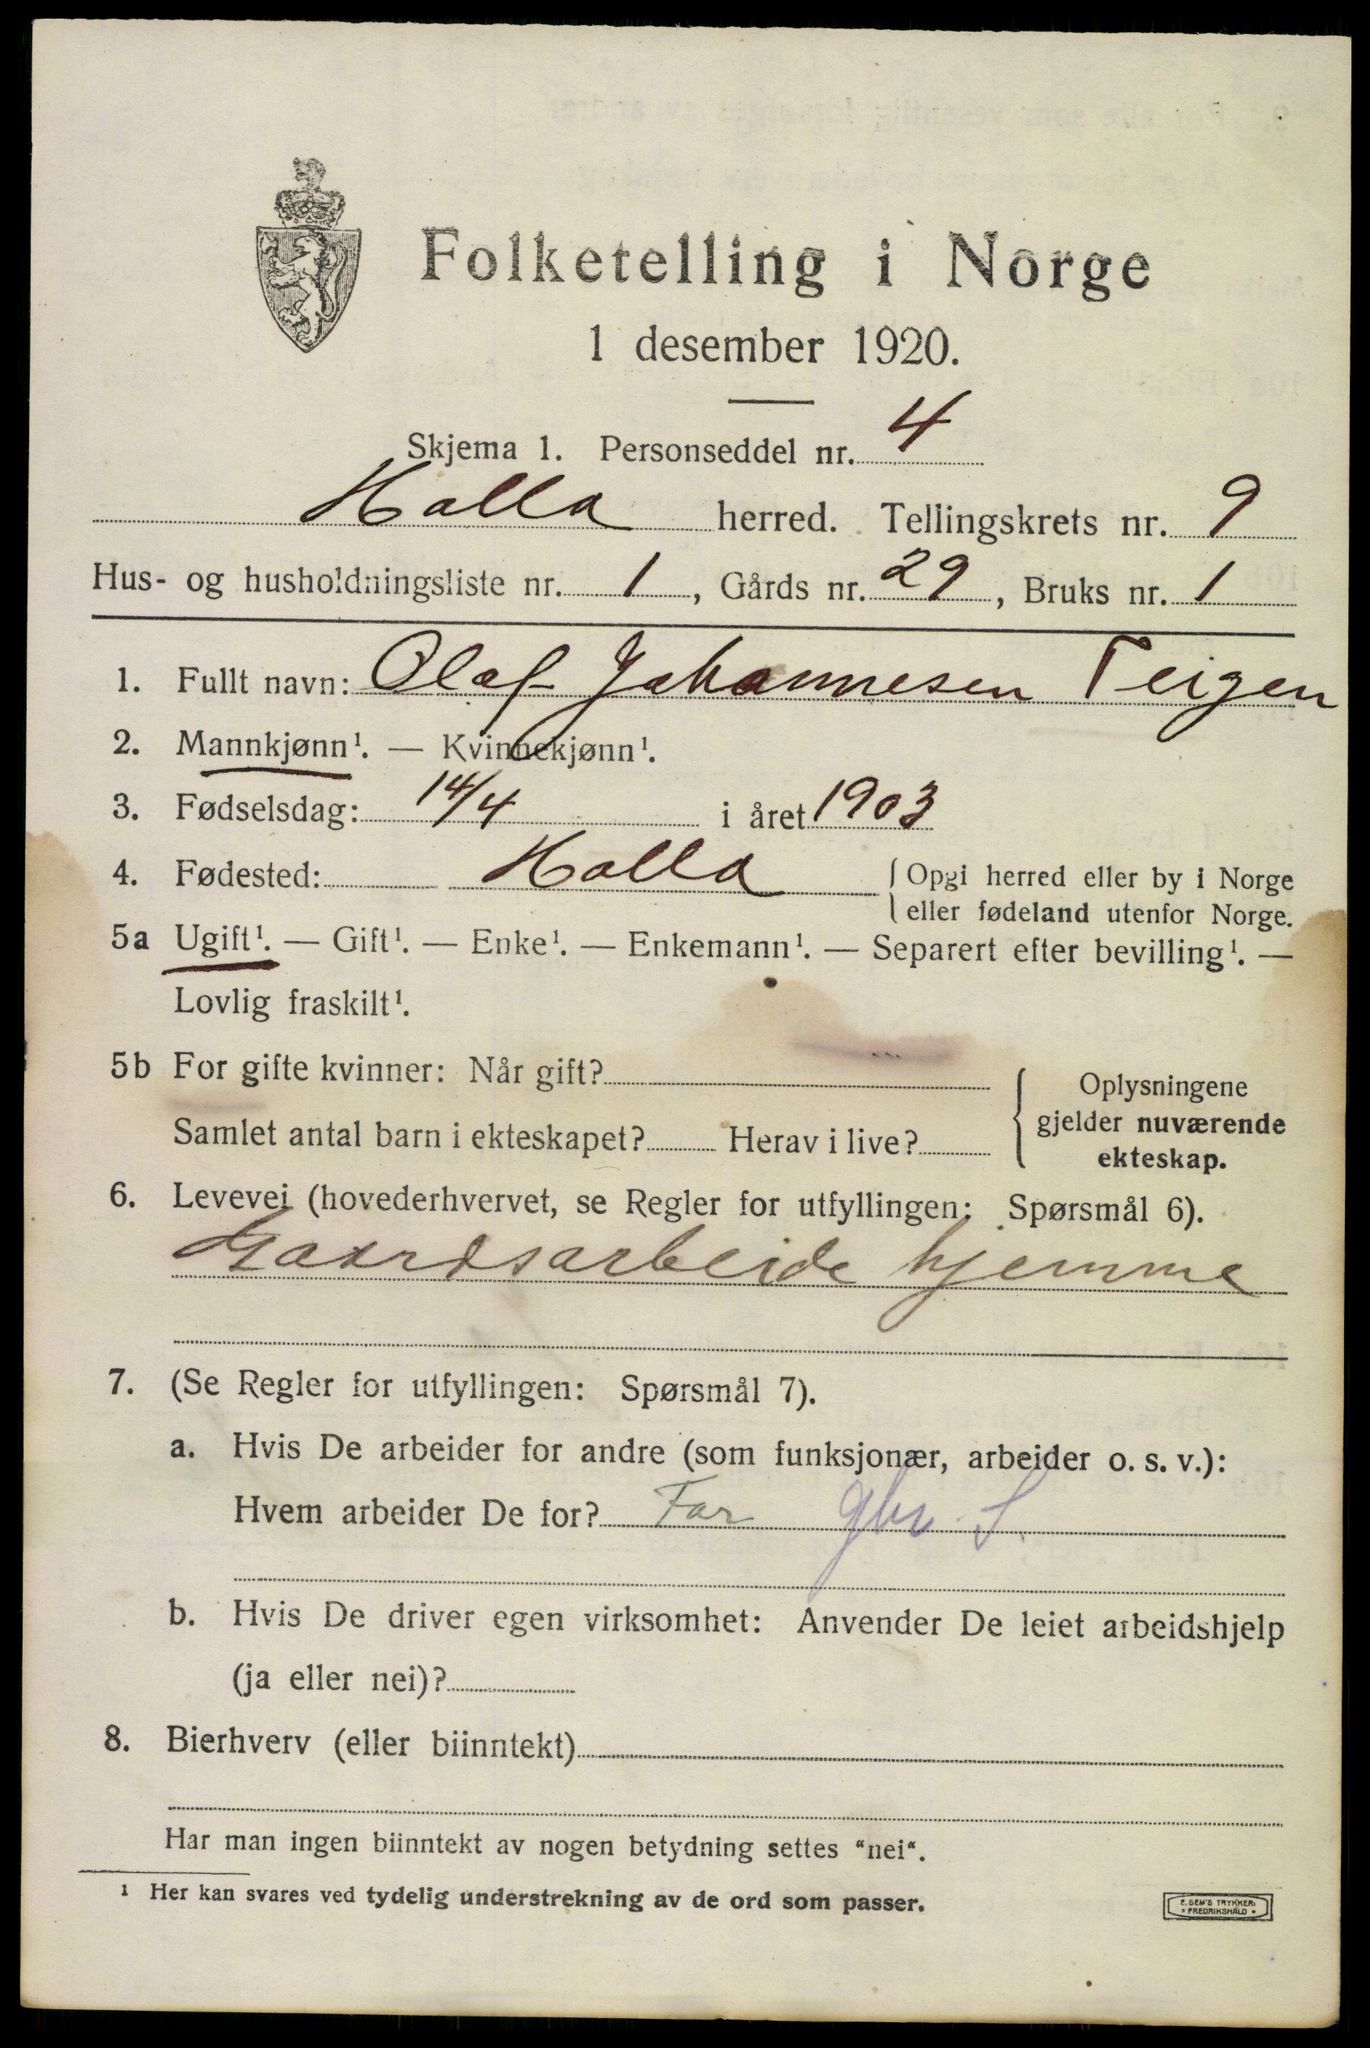 Folketelling i Norge
1 desember 1920.
Skjema 1. Personseddel nr. 4
Holla herred. Tellingskrets nr. 9
Hus- og husholdningsliste nr. 1, Gårds nr. 29, Bruks nr. 1
1. Fullt navn: Olaf Johannesen Teigen
2. Mannkjønn¹. — Kvinnekjønn¹.
3. Fødselsdag: 14/4 i året 1903
4. Fødested: Holla { Opgi herred eller by i Norge
eller fødeland utenfor Norge.
5a Ugift¹. — Gift¹. — Enke¹. — Enkemann¹. — Separert efter bevilling¹. —
Lovlig fraskilt¹.
5b For gifte kvinner: Når gift?
Samlet antal barn i ekteskapet? Herav i live?
Oplysningene
gjelder nuværende
ekteskap.
6. Levevei (hovederhvervet, se Regler for utfyllingen: Spørsmål 6).
Gaardsarbeide hjemme
7. (Se Regler for utfyllingen: Spørsmål 7).
a. Hvis De arbeider for andre (som funksjonær, arbeider o. s. v.):
Hvem arbeider De for? Far gbr. S.
b. Hvis De driver egen virksomhet: Anvender De leiet arbeidshjelp
(ja eller nei)?
8. Bierhverv (eller biinntekt)
Har man ingen biinntekt av nogen betydning settes "nei".
¹ Her kan svares ved tydelig understrekning av de ord som passer.
F. SEM'S TRYKKERI
* FREDRIKSHALD *